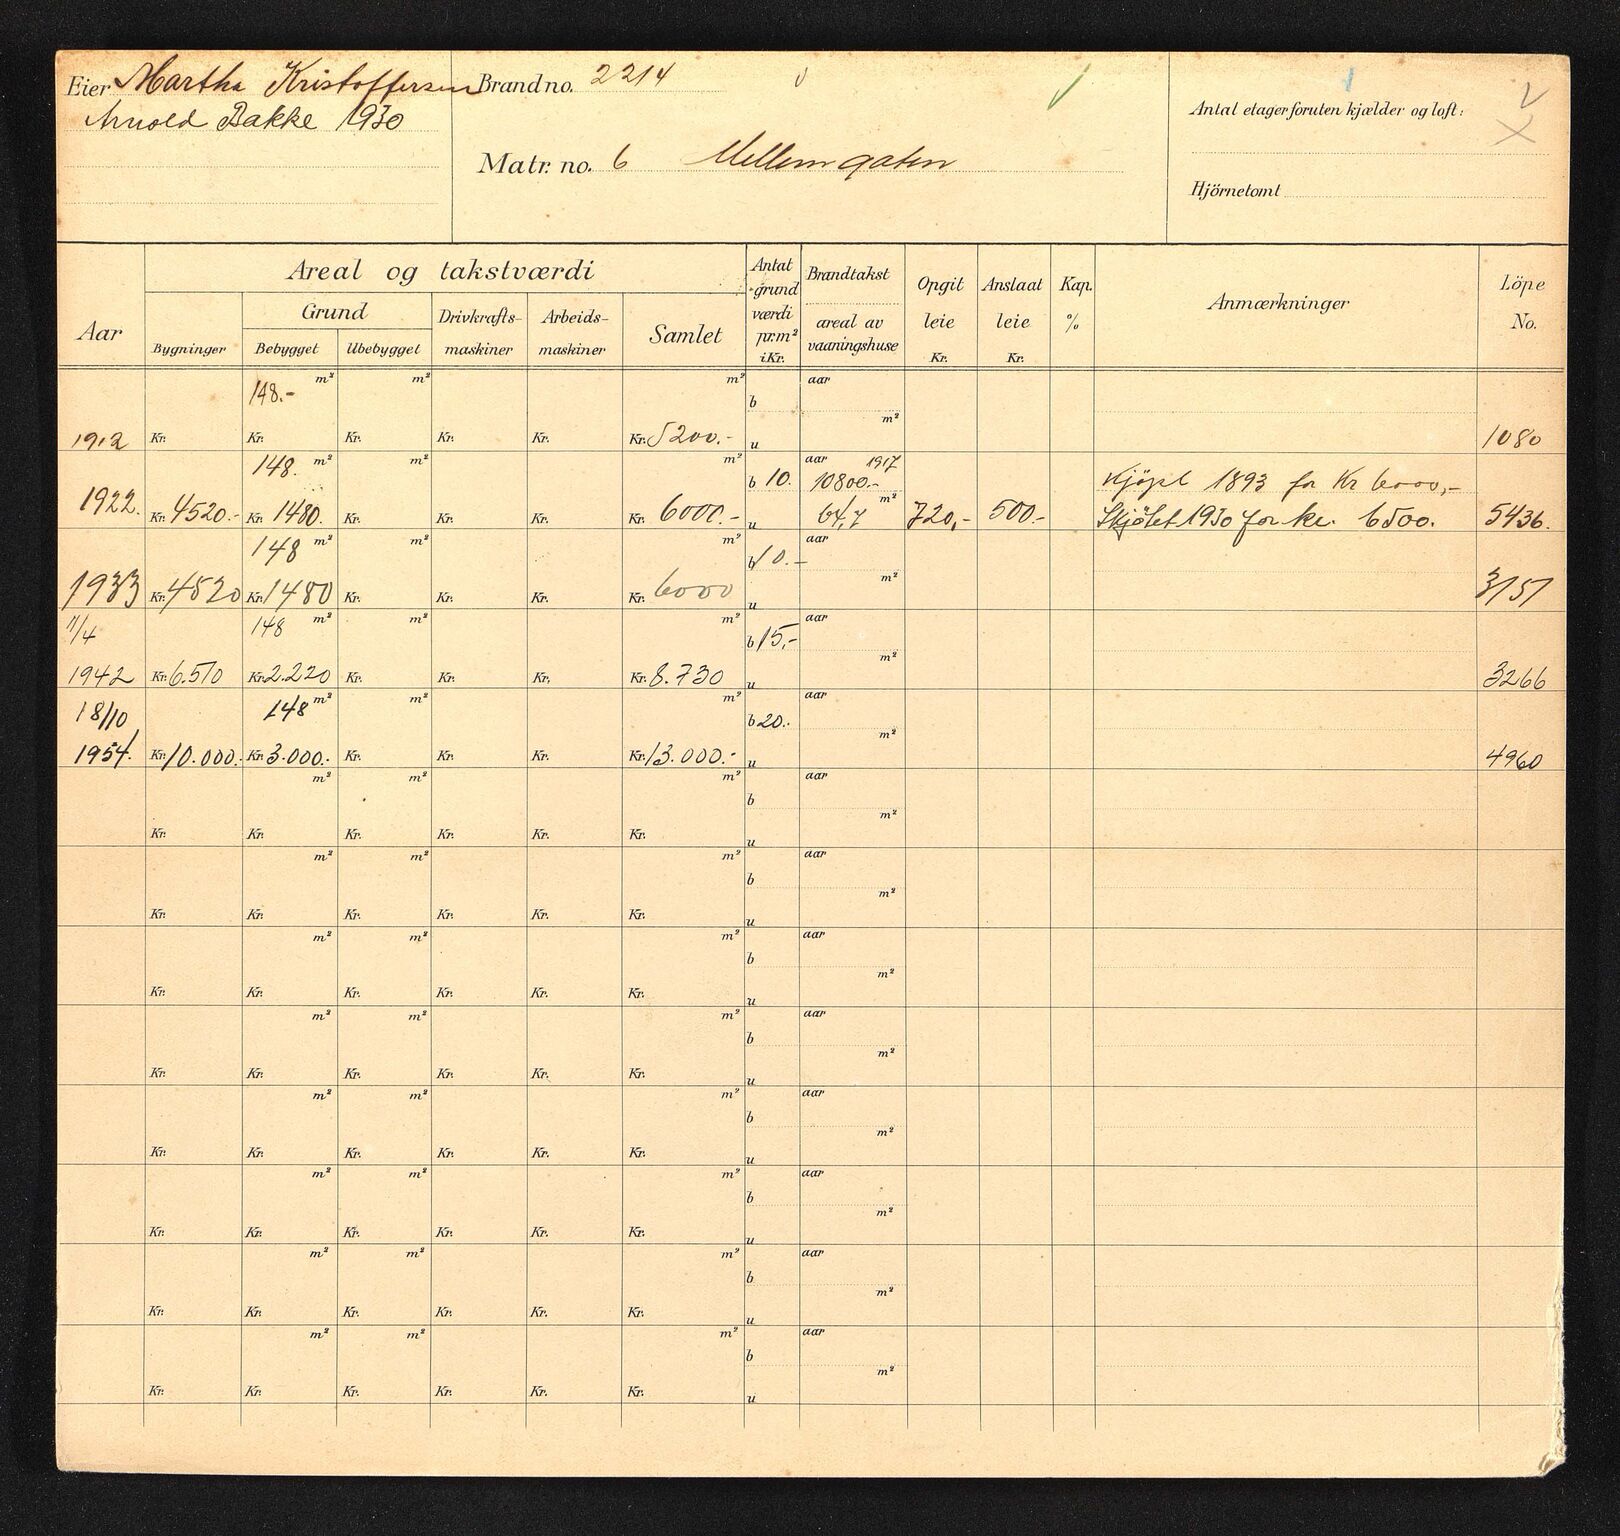 Eier Martha Kristoffersen Brandno. 2214
Arnold Bakke 1930
Antal etager foruten kjælder og loft:
Matr. no. 6 Mellemgaten
Hjörnetomt
Aar
Areal og takstværdi
Grund
Bygninger Bebygget Ubebygget
Drivkrafts-
maskiner
Arbeids-
maskiner
Samlet
Antat
grund
værdi
pr. m²
i Kr.
Brandtakst
areal av
vaaningshuse
Opgit
leie
Kr.
Anslaat
leie
Kr.
Kap.
%
Anmærkninger
Löpe
No.
148.- m² m² m² aar
b
m²
1912 Kr. Kr. Kr. Kr. Kr. Kr. 5200.- u 1080
148. m² m² m² aar 1917
b 10. 10800.- Kjöpt 1893 for Kr 6000,-
m²
1922. Kr. 4520.- Kr. 1480. Kr. Kr. Kr. Kr. 6000.- u 64,7 720,- 500.- Skjötet 1930 for kr. 6500. 5436.
148 m² m² m² aar
b 10.-
m²
1933 Kr. 4520 Kr. 1480 Kr. Kr. Kr. Kr. 6000 u 3151
11/4 148 m² m² m² aar
b 15,-
m²
1942 Kr. 6.510 Kr. 2.220 Kr. Kr. Kr. Kr. 8.730 u 3266
18/10 148 m² m² m² aar
b 20.-
m²
1954. Kr. 10.000.- Kr. 3.000.- Kr. Kr. Kr. Kr. 13.000.- u 4960
m² m² m² aar
b
m²
Kr. Kr. Kr. Kr. Kr. Kr. u
m² m² m² aar
b
m²
Kr. Kr. Kr. Kr. Kr. Kr. u
m² m² m² aar
b
m²
Kr. Kr. Kr. Kr. Kr. Kr. u
m² m² m² aar
b
m²
Kr. Kr. Kr. Kr. Kr. Kr. u
m² m² m² aar
b
m²
Kr. Kr. Kr. Kr. Kr. Kr. u
m² m² m² aar
b
m²
Kr. Kr. Kr. Kr. Kr. Kr. u
m² m² m² aar
b
m²
Kr. Kr. Kr. Kr. Kr. Kr. u
m² m² m² aar
b
m²
Kr. Kr. Kr. Kr. Kr. Kr. u